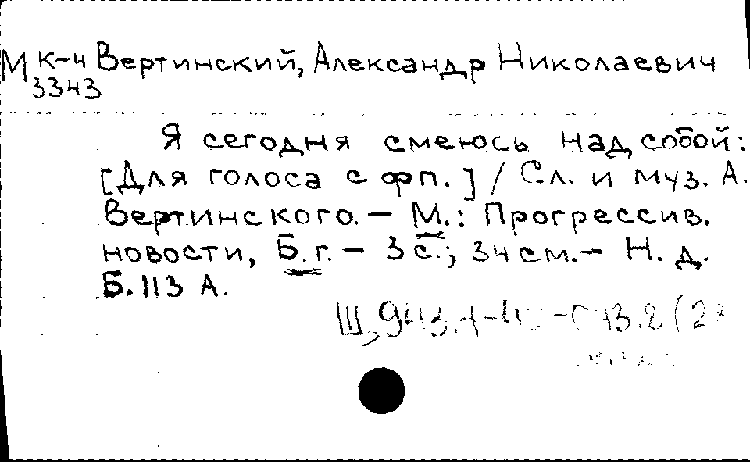 М к-ч Вертинский, Александр Николаевич
3343
Я сегодня смеюсь над собой:
[Для голоса с фп.] / Сл. и муз. А.
Вертинского. – М.: Прогрессив.
новости, Б.г. – 3 с.; 34 см. – Н. д.
Б.113 А.